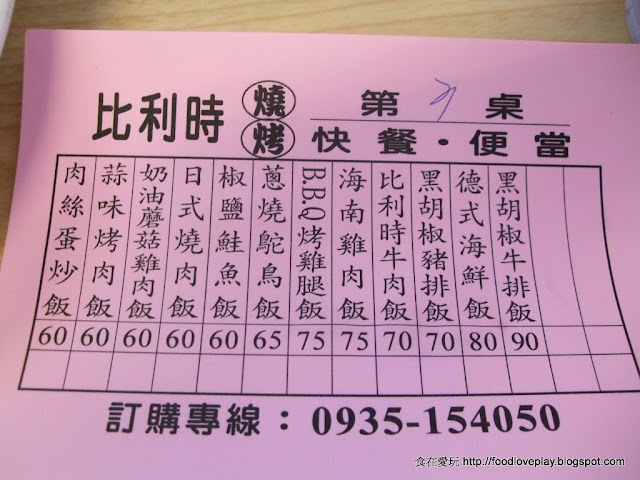 比利時 燒烤 第 桌
快餐・便當
黑胡椒牛排飯 90
德式海鮮飯 80
黑胡椒豬排飯 70
比利時牛肉飯 70
海南雞肉飯 75
B.B.Q烤雞腿飯 75
蔥燒鴕鳥飯 65
椒鹽鮭魚飯 60
日式燒肉飯 60
奶油蘑菇雞肉飯 60
蒜味烤肉飯 60
肉絲蛋炒飯 60
訂購專線：0935-154050
食在愛玩 http://foodloveplay.blogspot.com